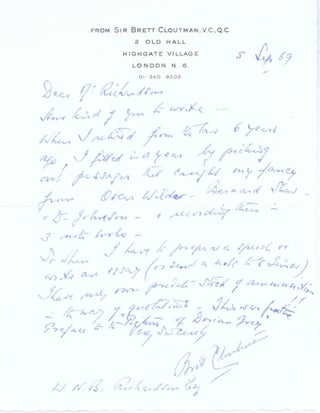 FROM SIR BRETT CLOUTMAN, V.C., Q.C.
2 OLD HALL
HIGHGATE VILLAGE
LONDON N. 6.
01-340 8205
5 Sep 69
Dear Mr Richardson
How kind of you to write –
When I retired from the 6 years
ago, I filled in a year by picking
out passages that caught my fancy
from Oscar Wilde – Bernard Shaw –
& Dr. Johnson – & recording them in
3 note books –
So when I have to prepare a speech or
write an essay (or send a note to Times)
I have my own private stock of ammunition
in the way of quotations – This was
Preface to the Picture of Dorian Gray
Very sincerely
Brett Cloutman
W. N. B. Richardson Esq